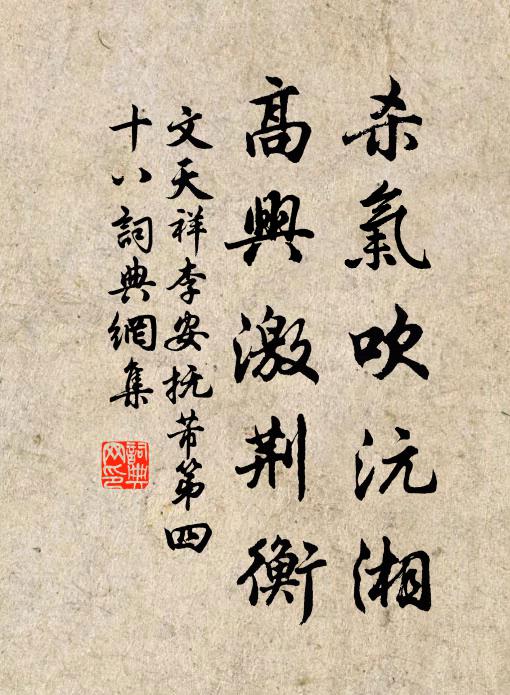 杀氣吹沅湘
高興激荆衡
文天祥李安抚芾第四
十八詞典網集
詞典
网印